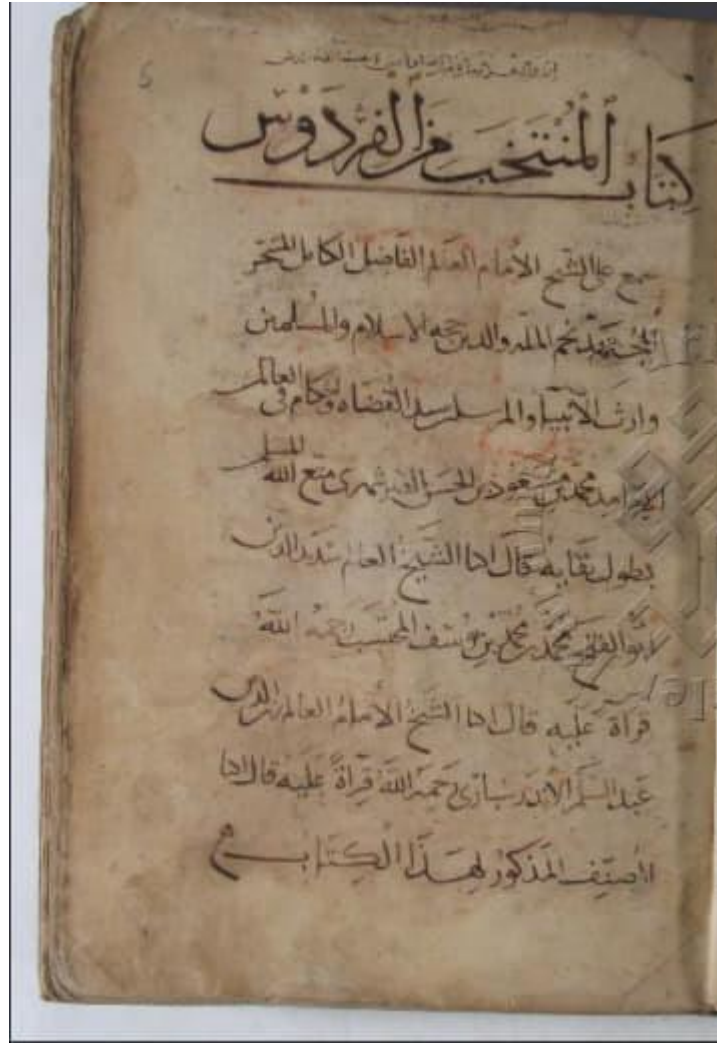 كتاب المنتخب من الفردوس
سمع على الشيخ الامام العالم الفاضل الكامل المتبحر
المجتهد نجم المله والدين حجه الاسلام والمسلمين
وارث الأنبيا والمرسلين سيد القضاه والحكام في العالم
محمد بن مسعود بن الحسن متع الله المسلمين
بطول بقايه قال انا الشيخ العالم سديد الدين
ابو الفتح محمد بن محمد بن يوسف المحتسب رحمه الله
قرأة عليه قال انا الشيخ الامام العالم
عبد السلم رحمه الله قرأة عليه قال انا
المصنف المذكور لهذا الكتاب